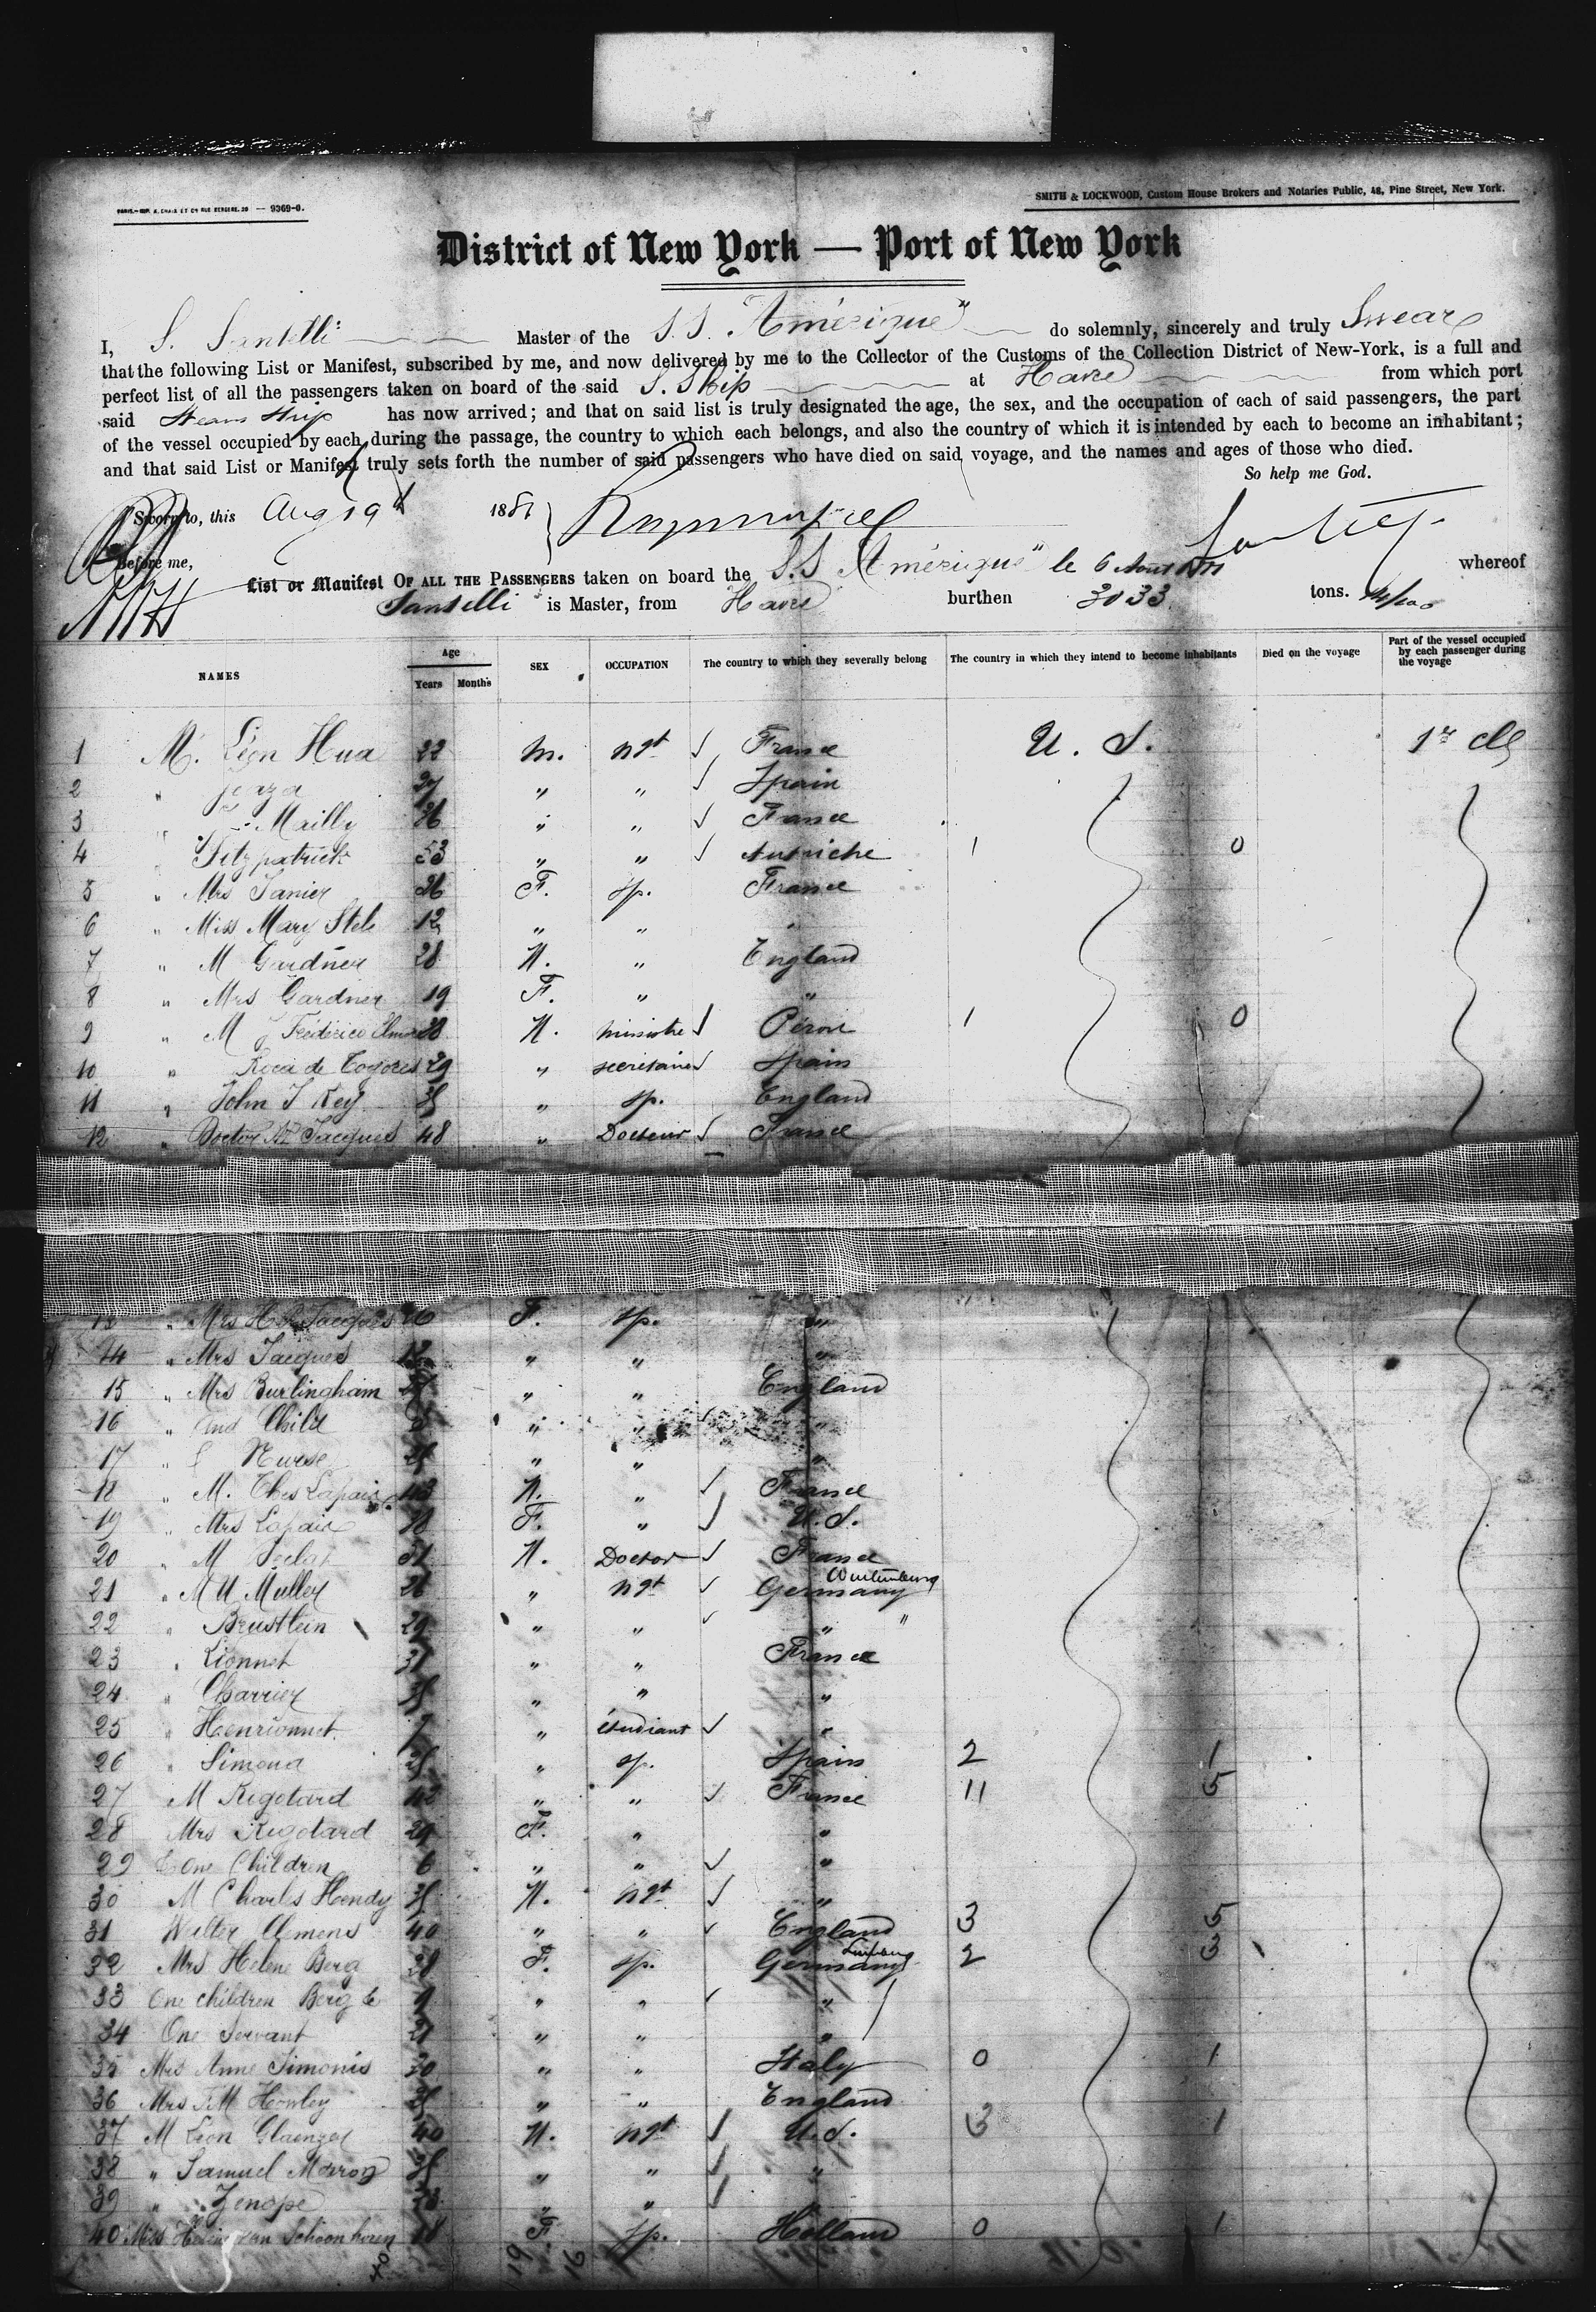 PARIS.—IMP. A. CHAIX ET Cie RUE BERGERE, 20 — 9369-0.
SMITH & LOCKWOOD, Custom House Brokers and Notaries Public, 48, Pine Street, New York.
District of New York — Port of New York
I, S. Santelli Master of the S.S. "Amérique" do solemnly, sincerely and truly Swear
that the following List or Manifest, subscribed by me, and now delivered by me to the Collector of the Customs of the Collection District of New-York, is a full and
perfect list of all the passengers taken on board of the said S. Ship at Havre from which port
said Steam Ship has now arrived; and that on said list is truly designated the age, the sex, and the occupation of each of said passengers, the part
of the vessel occupied by each during the passage, the country to which each belongs, and also the country of which it is intended by each to become an inhabitant;
and that said List or Manifest truly sets forth the number of said passengers who have died on said voyage, and the names and ages of those who died.
So help me God.
Sworn to, this Aug 19th 1881
Before me,
List or Manifest OF ALL THE PASSENGERS taken on board the S.S "Amérique" le 6 Aout whereof
Santelli is Master, from Havre burthen 3033 tons.
NAMES Age Years Months SEX OCCUPATION The country to which they severally belong The country in which they intend to become inhabitants Died on the voyage Part of the vessel occupied by each passenger during the voyage
1 M. Léon Hua 22 M. ngt France U. S. 1re cls
2 " 27 " " Spain
3 " Mailly 36 " " France
4 " Fitzpatrick 53 " " Autriche 1 0
5 " Mrs Tanier 26 F. sp. France
6 " Miss Mary Stele 12 " " "
7 " M Gardner 28 M. " England
8 " Mrs Gardner 19 F. " "
9 " M Fédérico Elmore 38 M. ministre Pérou 1 0
10 " Roca de Togores 29 " secretaire Spain
11 " John T Key 35 " sp. England
12 " Doctor Jacques 48 " Docteur France
13 " Mrs Jacques 26 F. sp. "
14 " Mrs Jacques 12 " " "
15 " Mrs Burlingham " " England
16 " and Child " " "
17 " & Nurse 25 " " "
18 " M. Ches Lapair 43 M. " France
19 " Mrs Lapair 38 F. " U. S.
20 " M 51 M. Doctor France
21 " M U Muller 26 " ngt Germany Wurtemburg
22 " Brustlein 29 " " " "
23 " Lionnet 31 " " France
24 " Charrier 35 " " "
25 " Henrionnet " étudiant "
26 " Simond 25 " sp. Spain 2 1
27 M Rigotard 42 " " France 11 5
28 Mrs Rigotard 29 F. " "
29 & One Children 6 " " "
30 M Charles Hendy 35 M. ngt "
31 Walter Clemens 40 " " England 3 5
32 Mrs Helene Berg 28 F. sp. Germany 2 3
33 One children Berg & 9 " " "
34 One Servant 21 " " "
35 Mrs Anne Simonis 30 " " Italy 0 1
36 Mrs F.M Howley 35 " " England
37 M Leon Glaenzer 40 M. ngt U. S. 3 1
38 " Samuel 35 " " "
39 " Zenope 23 " " "
40 Miss van Schoonhoven 18 F. sp. Holland 0 1
19 16